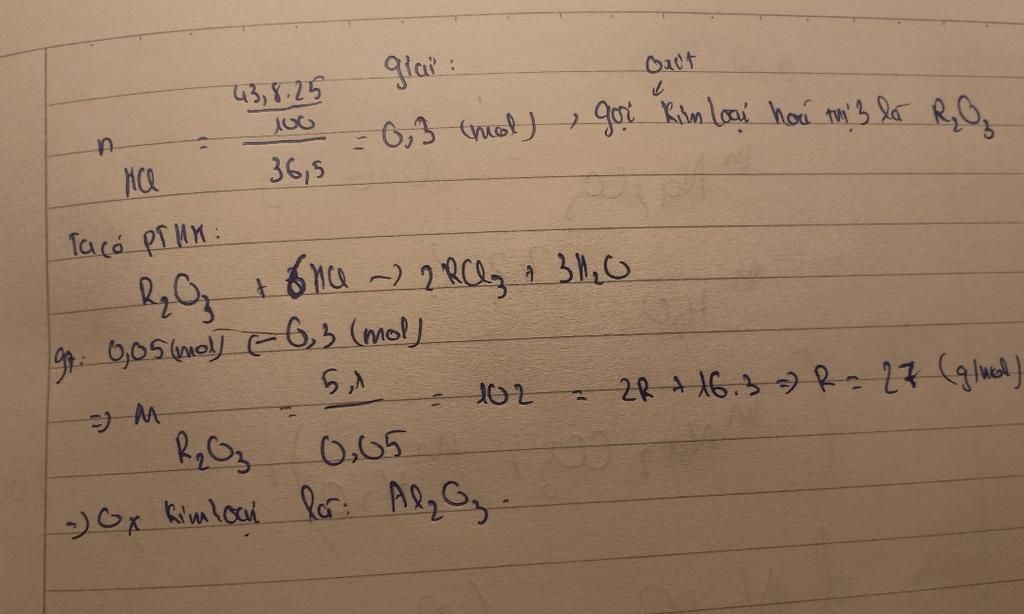 giải:
oxit
n HCl = 43,8.25/100 / 36,5 = 0,3 (mol), gọi kim loại hoá trị 3 là R₂O₃
Ta có PTHH:
R₂O₃ + 6HCl → 2RCl₃ + 3H₂O
gt: 0,05(mol) ← 0,3 (mol)
⇒ M R₂O₃ = 5,1/0,05 = 102 = 2R + 16.3 ⇒ R = 27 (g/mol)
⇒ Ox kim loại là: Al₂O₃.